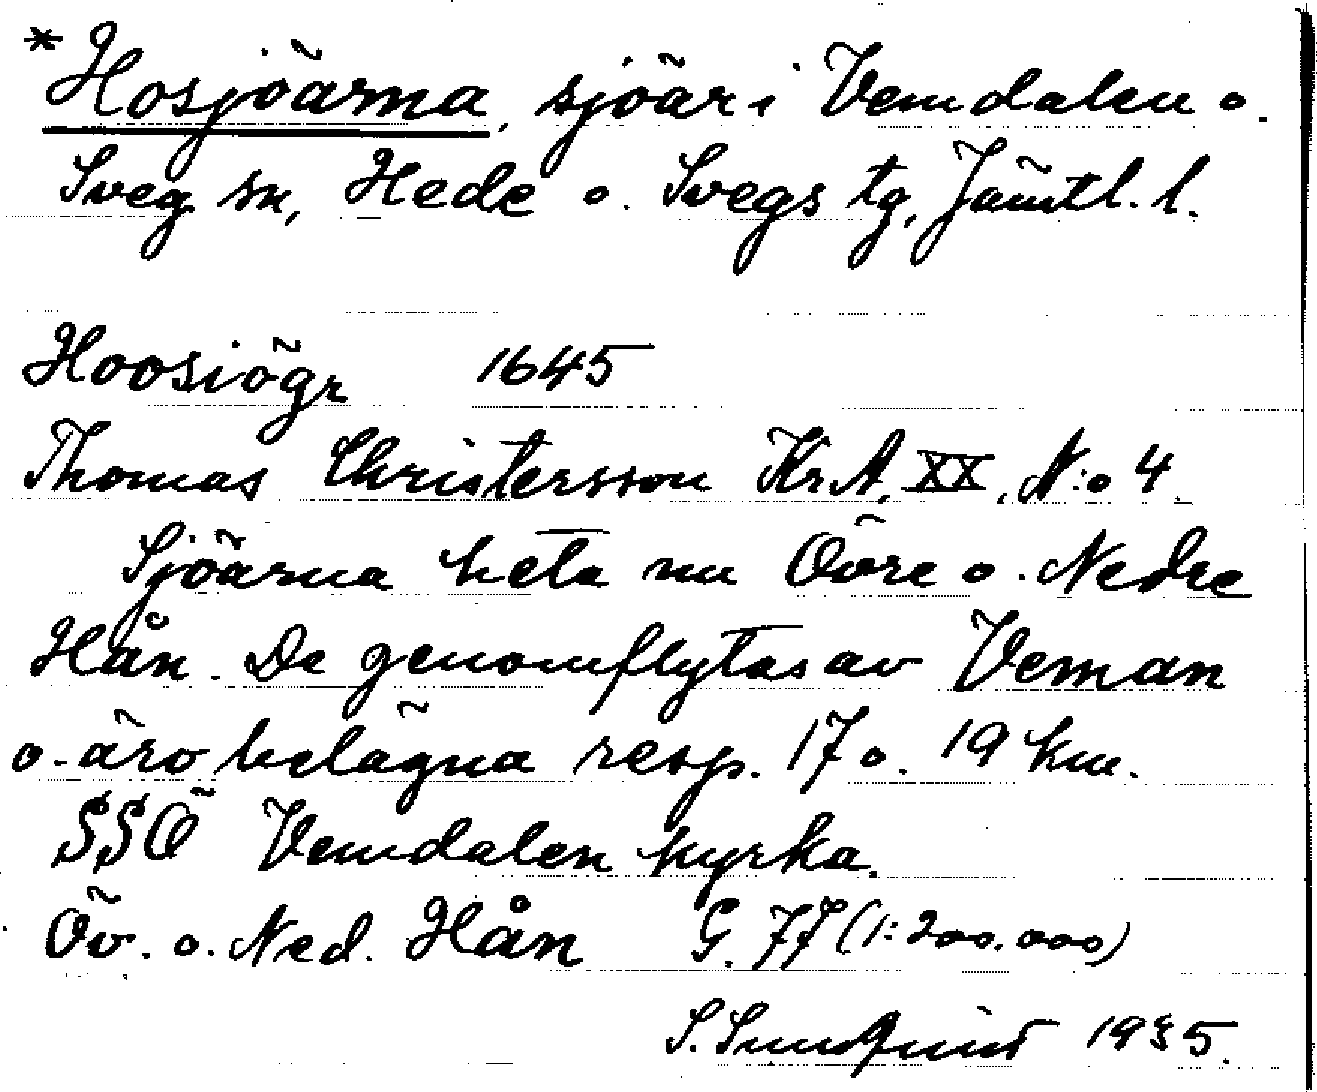 *Hosjöarna, sjöar i Vemdalen o.
Sveg sn, Hede o. Svegs tg, Jämtl. l.
Hoosiögr 1645
Thomas Christersson Kr.A. XX, N:o 4.
Sjöarna heta nu Övre o. Nedre
Hån. De genomflytas av Veman
o. äro belägna resp. 17 o. 19 km.
SSÖ Vemdalen kyrka.
Öv. o. Ned. Hån G. 77 (1:200.000)
S. Sundquist 1935.